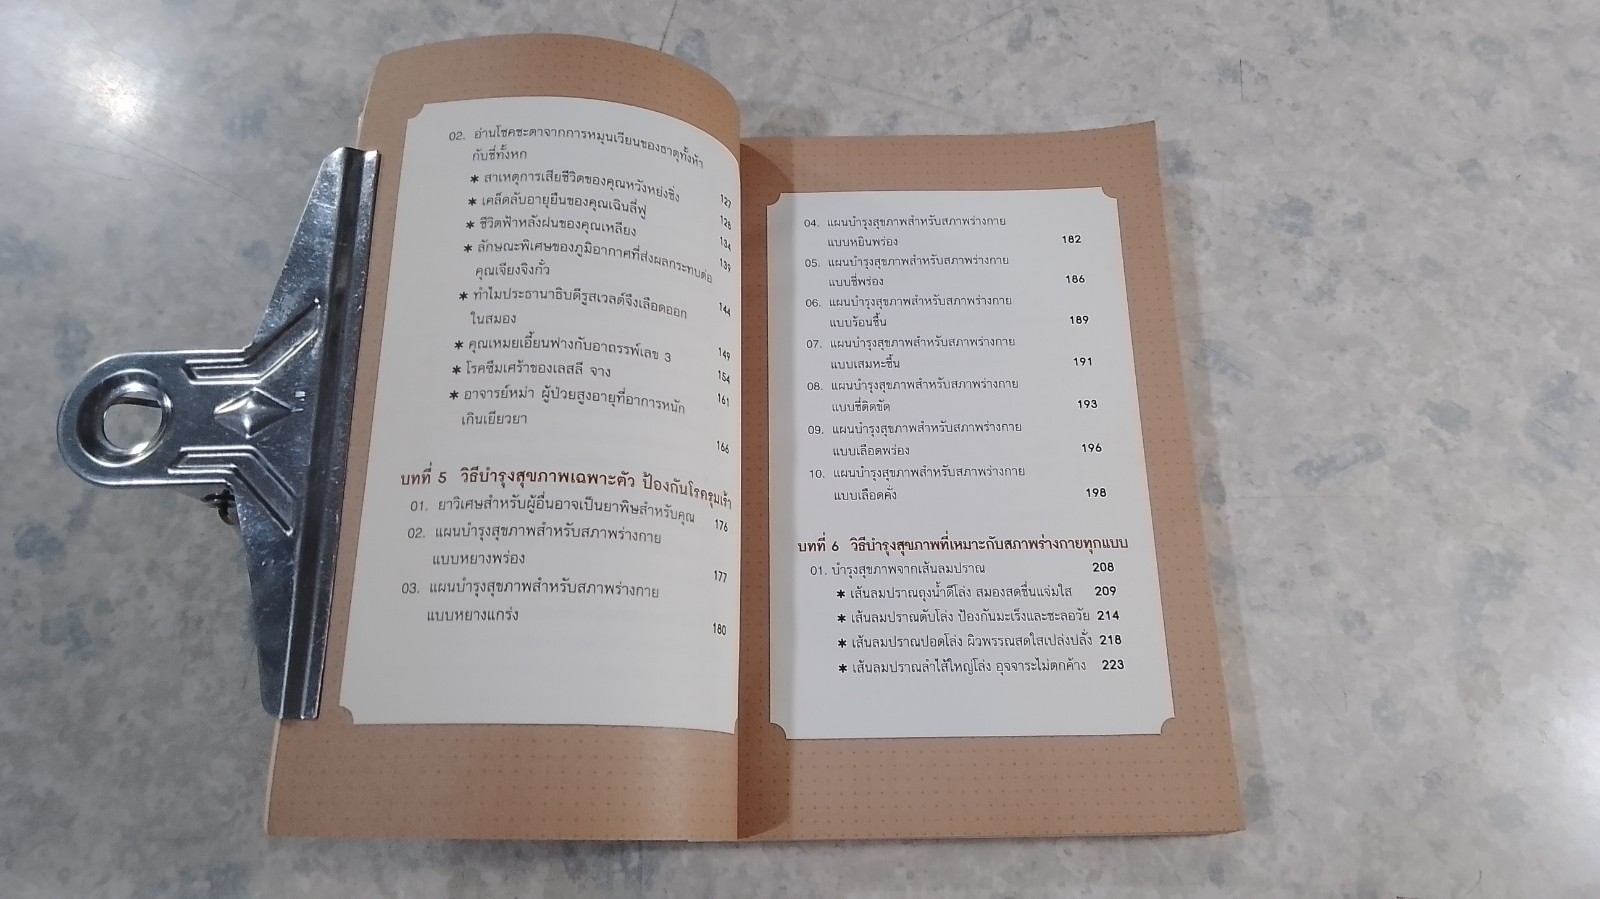 02. อ่านโชคชะตาจากการหมุนเวียนของธาตุทั้งห้า
กับชี่ทั้งหก
✱ สาเหตุการเสียชีวิตของคุณหวังหย่งชิ่ง 127
✱ เคล็ดลับอายุยืนของคุณเฉินลี่ฟู 128
✱ ชีวิตฟ้าหลังฝนของคุณเหลียง 134
✱ ลักษณะพิเศษของภูมิอากาศที่ส่งผลกระทบต่อ 139
คุณเจียงจิงกั๋ว
✱ ทำไมประธานาธิบดีรูสเวลต์จึงเลือดออก 144
ในสมอง
✱ คุณเหมยเอี้ยนฟางกับอาถรรพ์เลข 3 149
✱ โรคซึมเศร้าของเลสลี จาง 154
✱ อาจารย์หม่า ผู้ป่วยสูงอายุที่อาการหนัก 161
เกินเยียวยา
166
บทที่ 5 วิธีบำรุงสุขภาพเฉพาะตัว ป้องกันโรครุมเร้า
01. ยาวิเศษสำหรับผู้อื่นอาจเป็นยาพิษสำหรับคุณ 176
02. แผนบำรุงสุขภาพสำหรับสภาพร่างกาย
แบบหยางพร่อง 177
03. แผนบำรุงสุขภาพสำหรับสภาพร่างกาย
แบบหยางแกร่ง 180
04. แผนบำรุงสุขภาพสำหรับสภาพร่างกาย
แบบหยินพร่อง 182
05. แผนบำรุงสุขภาพสำหรับสภาพร่างกาย
แบบชี่พร่อง 186
06. แผนบำรุงสุขภาพสำหรับสภาพร่างกาย
แบบร้อนชื้น 189
07. แผนบำรุงสุขภาพสำหรับสภาพร่างกาย
แบบเสมหะชื้น 191
08. แผนบำรุงสุขภาพสำหรับสภาพร่างกาย
แบบชี่ติดขัด 193
09. แผนบำรุงสุขภาพสำหรับสภาพร่างกาย
แบบเลือดพร่อง 196
10. แผนบำรุงสุขภาพสำหรับสภาพร่างกาย
แบบเลือดคั่ง 198
บทที่ 6 วิธีบำรุงสุขภาพที่เหมาะกับสภาพร่างกายทุกแบบ
01. บำรุงสุขภาพจากเส้นลมปราณ 208
✱ เส้นลมปราณถุงน้ำดีโล่ง สมองสดชื่นแจ่มใส 209
✱ เส้นลมปราณตับโล่ง ป้องกันมะเร็งและชะลอวัย 214
✱ เส้นลมปราณปอดโล่ง ผิวพรรณสดใสเปล่งปลั่ง 218
✱ เส้นลมปราณลำไส้ใหญ่โล่ง อุจจาระไม่ตกค้าง 223